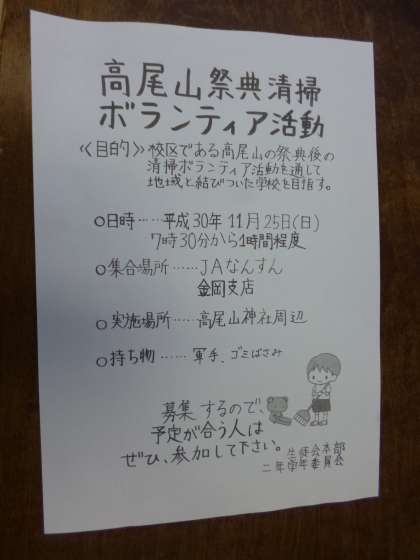 高尾山祭典清掃
ボランティア活動
≪目的≫ 校区である高尾山の祭典後の
清掃ボランティア活動を通して
地域と結びついた学校を目指す。
○日時……平成30年11月25日(日)
7時30分から1時間程度
○集合場所……JAなんすん
金岡支店
○実施場所……高尾山神社周辺
○持ち物……軍手、ゴミばさみ
募集するので、
予定が合う人は
ぜひ、参加して下さい。
生徒会本部
二年学年委員会